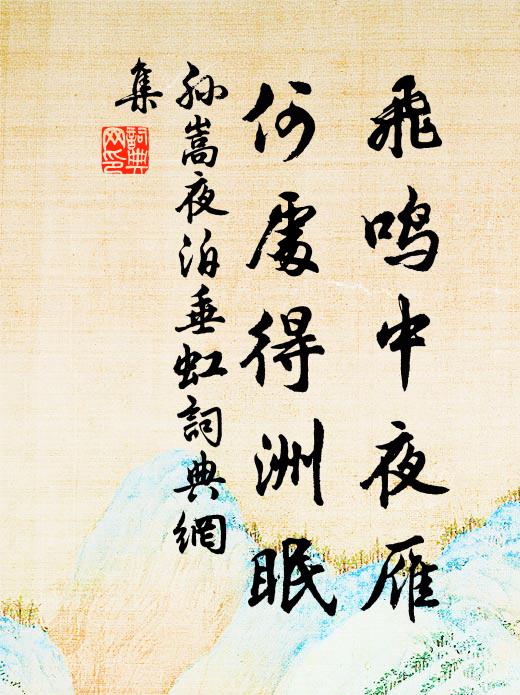 飛鳴中夜雁
何處得洲眠
孫嵩夜泊垂虹詞典網
集
詞典網印